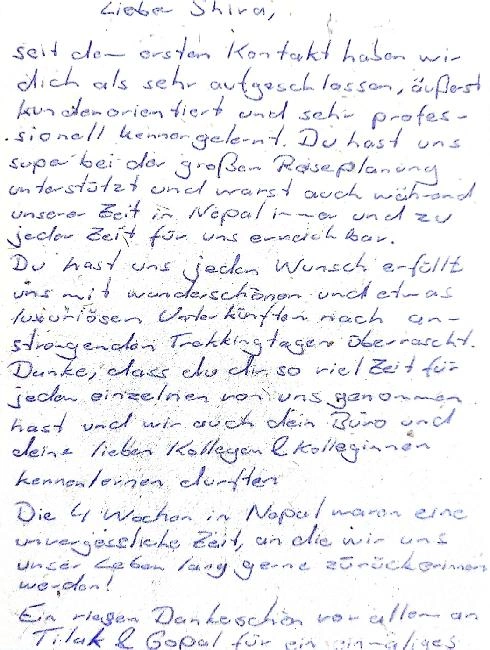 Lieber Shira,
seit dem ersten Kontakt haben wir
dich als sehr aufgeschlossen, äußerst
kundenorientiert und sehr profes-
sionell kennengelernt. Du hast uns
super bei der großen Reiseplanung
unterstützt und warst auch während
unserer Zeit in Nepal immer und zu
jeder Zeit für uns erreichbar.
Du hast uns jeden Wunsch erfüllt
uns mit wunderschönen und etwas
luxuriösen Unterkünften nach an-
strengenden Trekkingtagen überrascht.
Danke, dass du dir so viel Zeit für
jeden einzelnen von uns genommen
hast und wir auch dein Büro und
deine lieben Kollegen & Kolleginnen
kennenlernen durften
Die 4 Wochen in Nepal waren eine
unvergessliche Zeit, an die wir uns
unser Leben lang gerne zurückerinnern
werden!
Ein riesen Dankeschön vor allem an
Tilak & Gopal für ein einmaliges